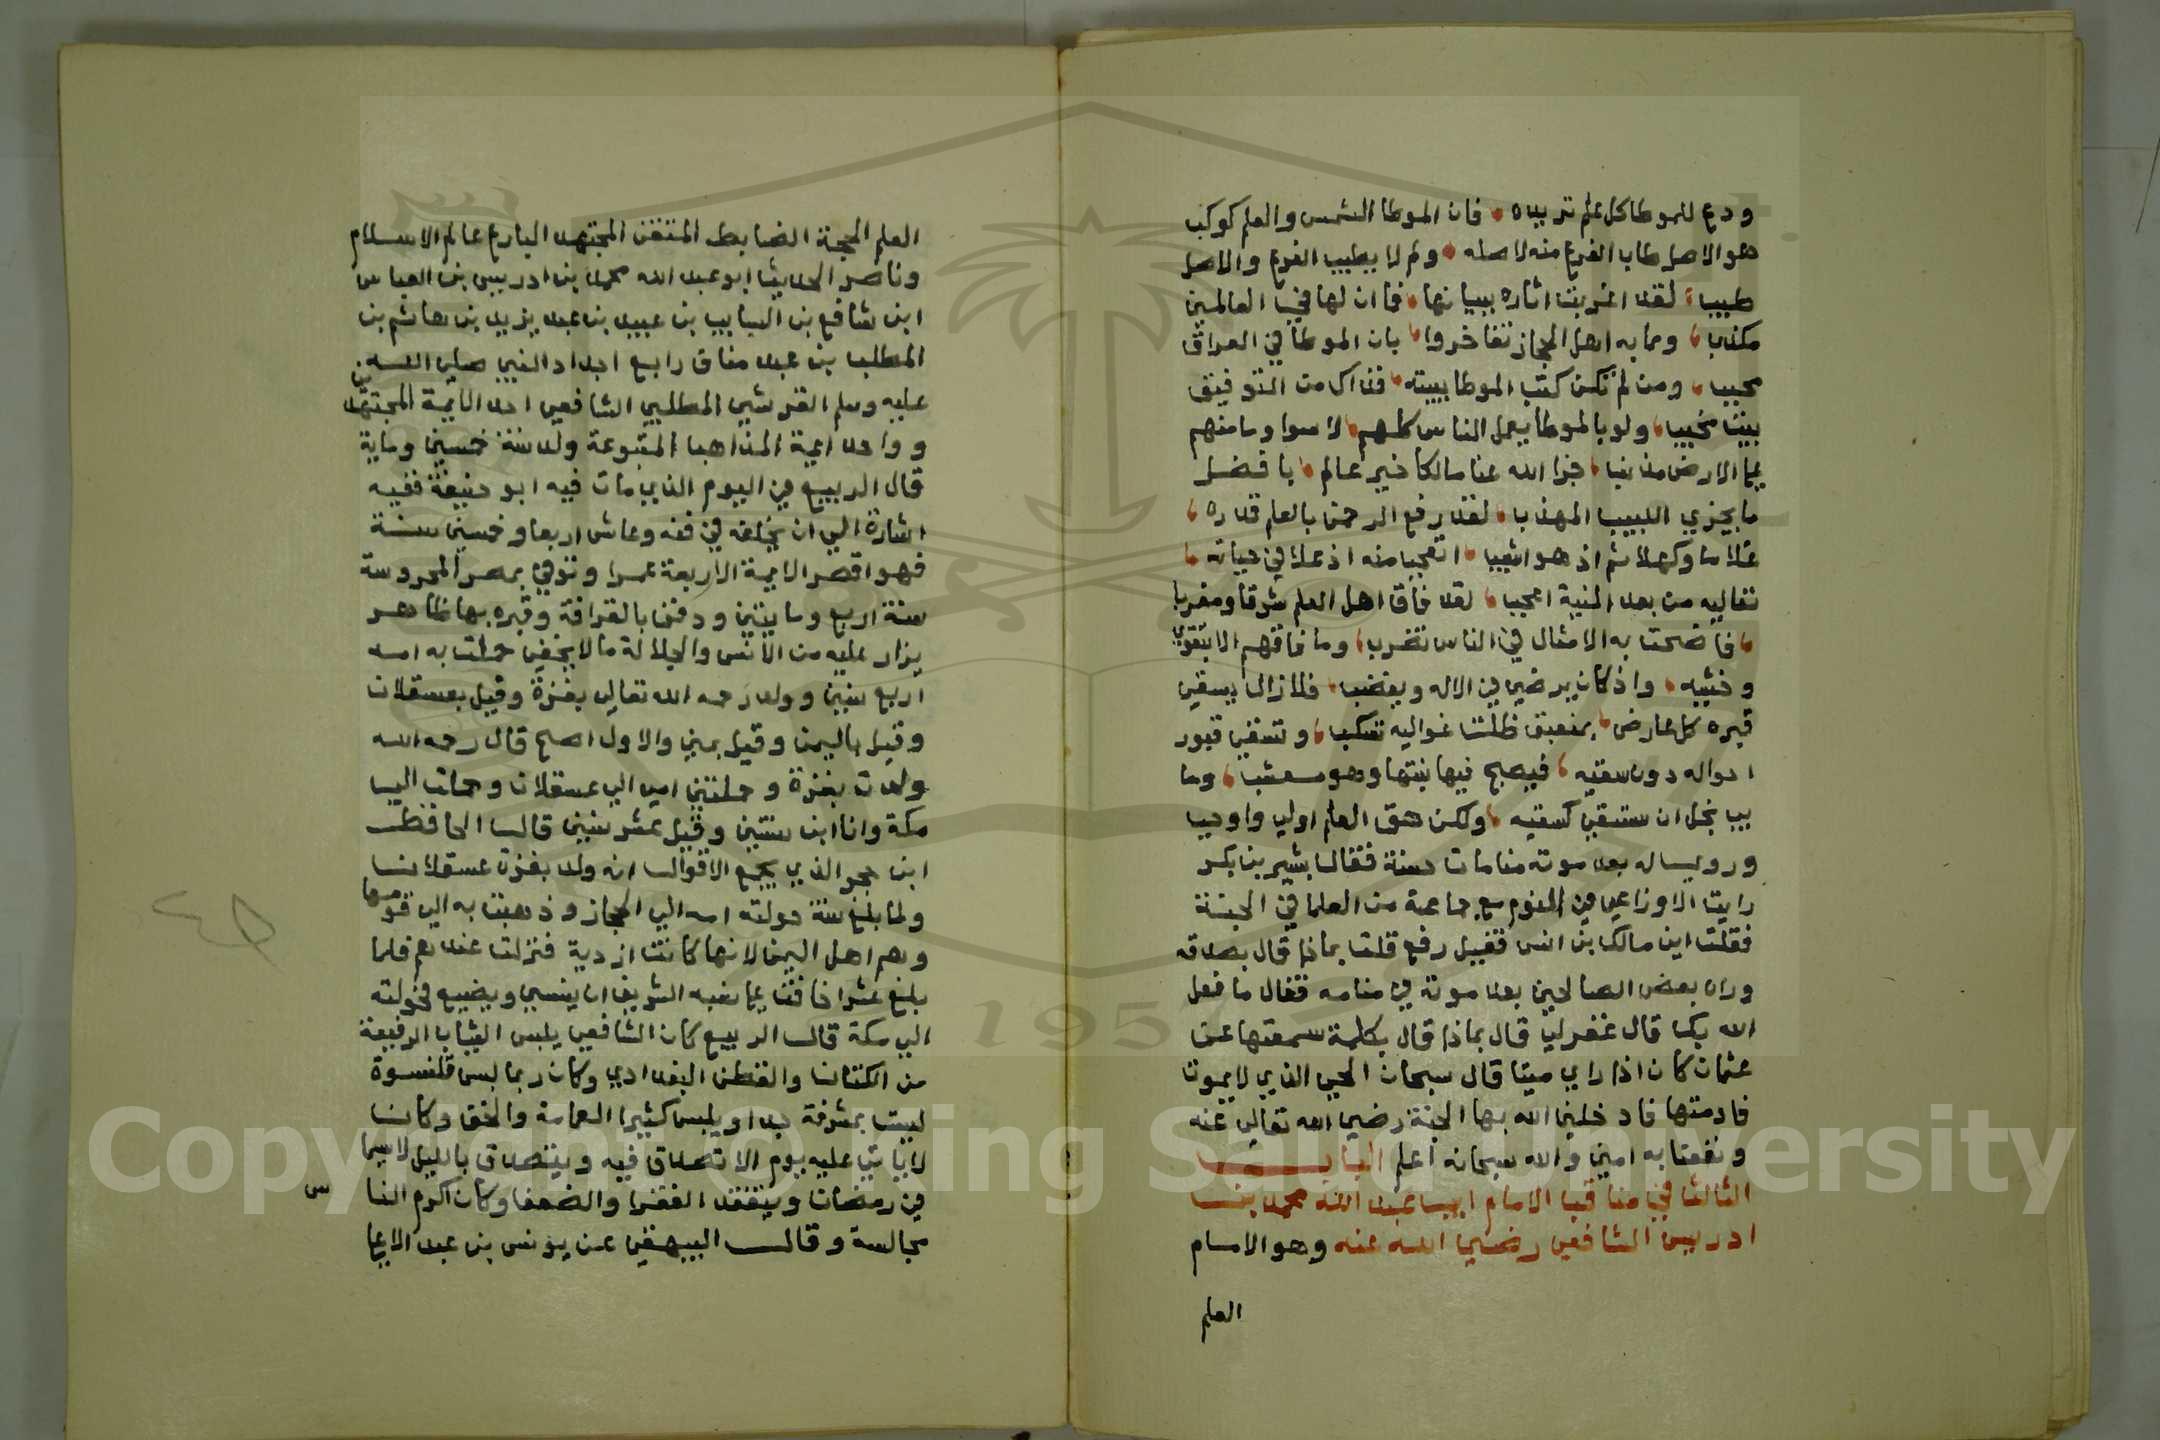 ودع للموطا كل علم تريده فان الموطا الشمس والعلم كوكب
هو الاصل طاب الفرع منه لاصله ولم لا يطيب الفرع والاصل
طيب لقد اعربت اثاره ببيانها فما ان لها في العالمين
مكذب ومما به اهل الحجاز تفاخروا بان الموطا في العراق
محبب ومن لم تكن كتب الموطا ببيته فذاك من التوفيق
بيت مخيب ولو بالموطا يعمل الناس كلهم لامسوا وما منهم
علي الارض مذنب جزا الله عنا مالكا خير عالم بافضل
ما يجزي اللبيب المهذب لقد رفع الرحمن بالعلم قدره
غلاما وكهلا ثم اذ هو اشيب اتعجب منه اذ علا في حياته
تعاليه من بعد المنية اعجب لقد فاق اهل العلم شرقا ومغربا
فاضحت به الامثال في الناس تضرب وما فاقهم الا بتقوي
وخشيه واذ كان يرضي في الاله ويغضب فلا زال يسقي
قبره كل عارض بمنعبق ظلت غواليه تسكب وتسقي قبور
احواله دون سقيه فيصبح فيها نبتها وهو معشب وما
بي بخل ان ستسقي كسقيه ولكن حق العلم اولي واوجب
ورويت له بعد موته منامات حسنة فقال بشير بن بكر
رايت الاوزاعي في النوم مع جماعة من العلما في الجنة
فقلت اين مالك بن انس فقيل رفع قلت بماذا قال بصدقه
وراه بعض الصالحين بعد موته في منامه فقال ما فعل
الله بك قال غفر لي قال بماذا قال بكلمة سمعتها عن
عثمان كان اذا راي ميتا قال سبحان الحي الذي لا يموت
فادمتها فادخلني الله بها الجنة رضي الله تعالي عنه
ونفعنا به امين والله سبحانه اعلم الباب
الثالث في مناقب الامام ابي عبد الله محمد بن
ادريس الشافعي رضي الله عنه وهو الامام
العلم
العلم الحجة الضابط المتقن المجتهد البارع عالم الاسلام
وناصر الحديث ابو عبد الله محمد بن ادريس بن العباس
ابن شافع بن السايب بن عبيد بن عبد يزيد بن هاشم بن
المطلب بن عبد مناف رابع اجداد النبي صلي الله
عليه وسلم القرشي المطلبي الشافعي احد الايمة المجتهدين
وواحد ايمة المذاهب المتبوعة ولد سنة خمسين وماية
قال الربيع في اليوم الذي مات فيه ابو حنيفة ففيه
اشارة الي ان يخلفه في فنه وعاش اربعا وخمسين سنة
فهو اقصر الايمة الاربعة عمرا وتوفي بمصر المحروسة
سنة اربع ومايتين ودفن بالقرافة وقبره بها ظاهر
يزار عليه من الانس والجلالة ما لا يخفي حملت به امه
اربع سنين وولد رحمه الله تعالي بغزة وقيل بعسقلان
وقيل باليمن وقيل بمني والاول اصح قال رحمه الله
ولدت بغزة وحملتني امي الي عسقلان وحملت الي
مكة وانا ابن سنتين وقيل عشر سنين قال الحافظ
ابن حجر الذي يجمع الاقوال انه ولد بغزة عسقلان
ولما بلغ سنة حولته امه الي الحجاز وذهبت به الي قومها
وهم اهل اليمن لانها كانت ازدية فنزلت عندهم فلما
بلغ عشرا خافت علي نسبه الشريف ان ينسي ويضيع فحولته
الي مكة قال الربيع كان الشافعي يلبس الثياب الرفيعة
من الكتان والقطن البغدادي وكان ربما لبس قلنسوة
ليست بمشرفة جدا ويلبس كثيرا العمامة والخف وكان
لا ياتي عليه يوم الا تصدق فيه ويتصدق بالليل لاسيما
في رمضان ويتفقد الفقرا والضعفا وكان اكرم الناس
مجالسة وقال البيهقي عن يونس بن عبد الاعلي
Copyright © King Saud University
1957